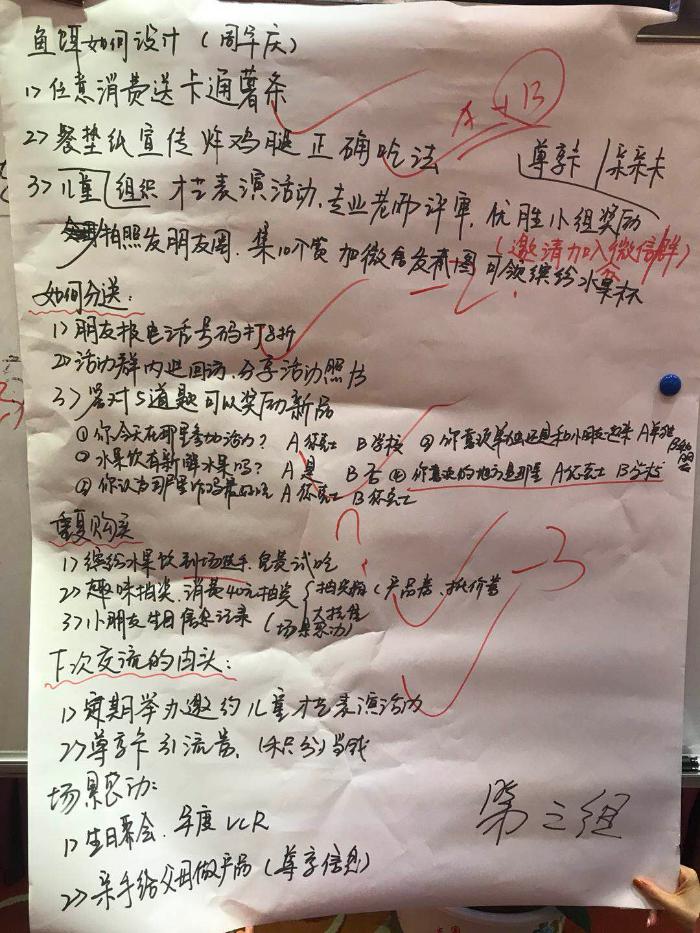 鱼饵如何设计（周年庆）
1> 任意消费送卡通薯条
A+B
2> 餐垫纸宣传炸鸡腿正确吃法
尊享卡
3> 儿童组织才艺表演活动,专业老师评审,优胜小组奖励
（邀请加入微信群）
拍照发朋友圈,集10个赞加微信发截图可领缤纷水果杯
如何分送：
1> 朋友报电话号码打8折
2> 活动群内巡回访.分享活动照片
3> 答对5道题可以奖励新品
①你今天在那里参加活动? A 你克士 B 学校 ④你喜欢单独还是和小朋友过来 A单独
②水果饮有新鲜水果吗? A 是 B 否 ⑤你喜欢的地方是那里 A 你克士 B 学校
重复购买
1> 缤纷水果饮到场 免费试吃
-3
2> 趣味抽奖.消费40元抽奖
3> 小朋友生日信息记录（场景感动）
下次交流的由头：
1> 定期举办邀约儿童才艺表演活动
2> 尊享卡引流
场景感动：
1> 生日聚会.年度VCR
2> 亲手给父母做产品（尊享信息）
第三组